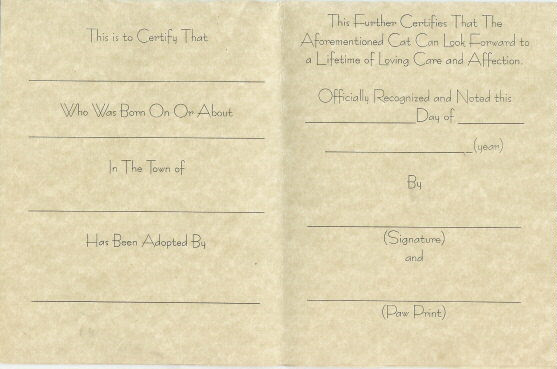 This is to Certify That
Who Was Born On Or About
In The Town of
Has Been Adopted By
This Further Certifies That The
Aforementioned Cat Can Look Forward to
a Lifetime of Loving Care and Affection.
Officially Recognized and Noted this
Day of
(year)
By
(Signature)
and
(Paw Print)